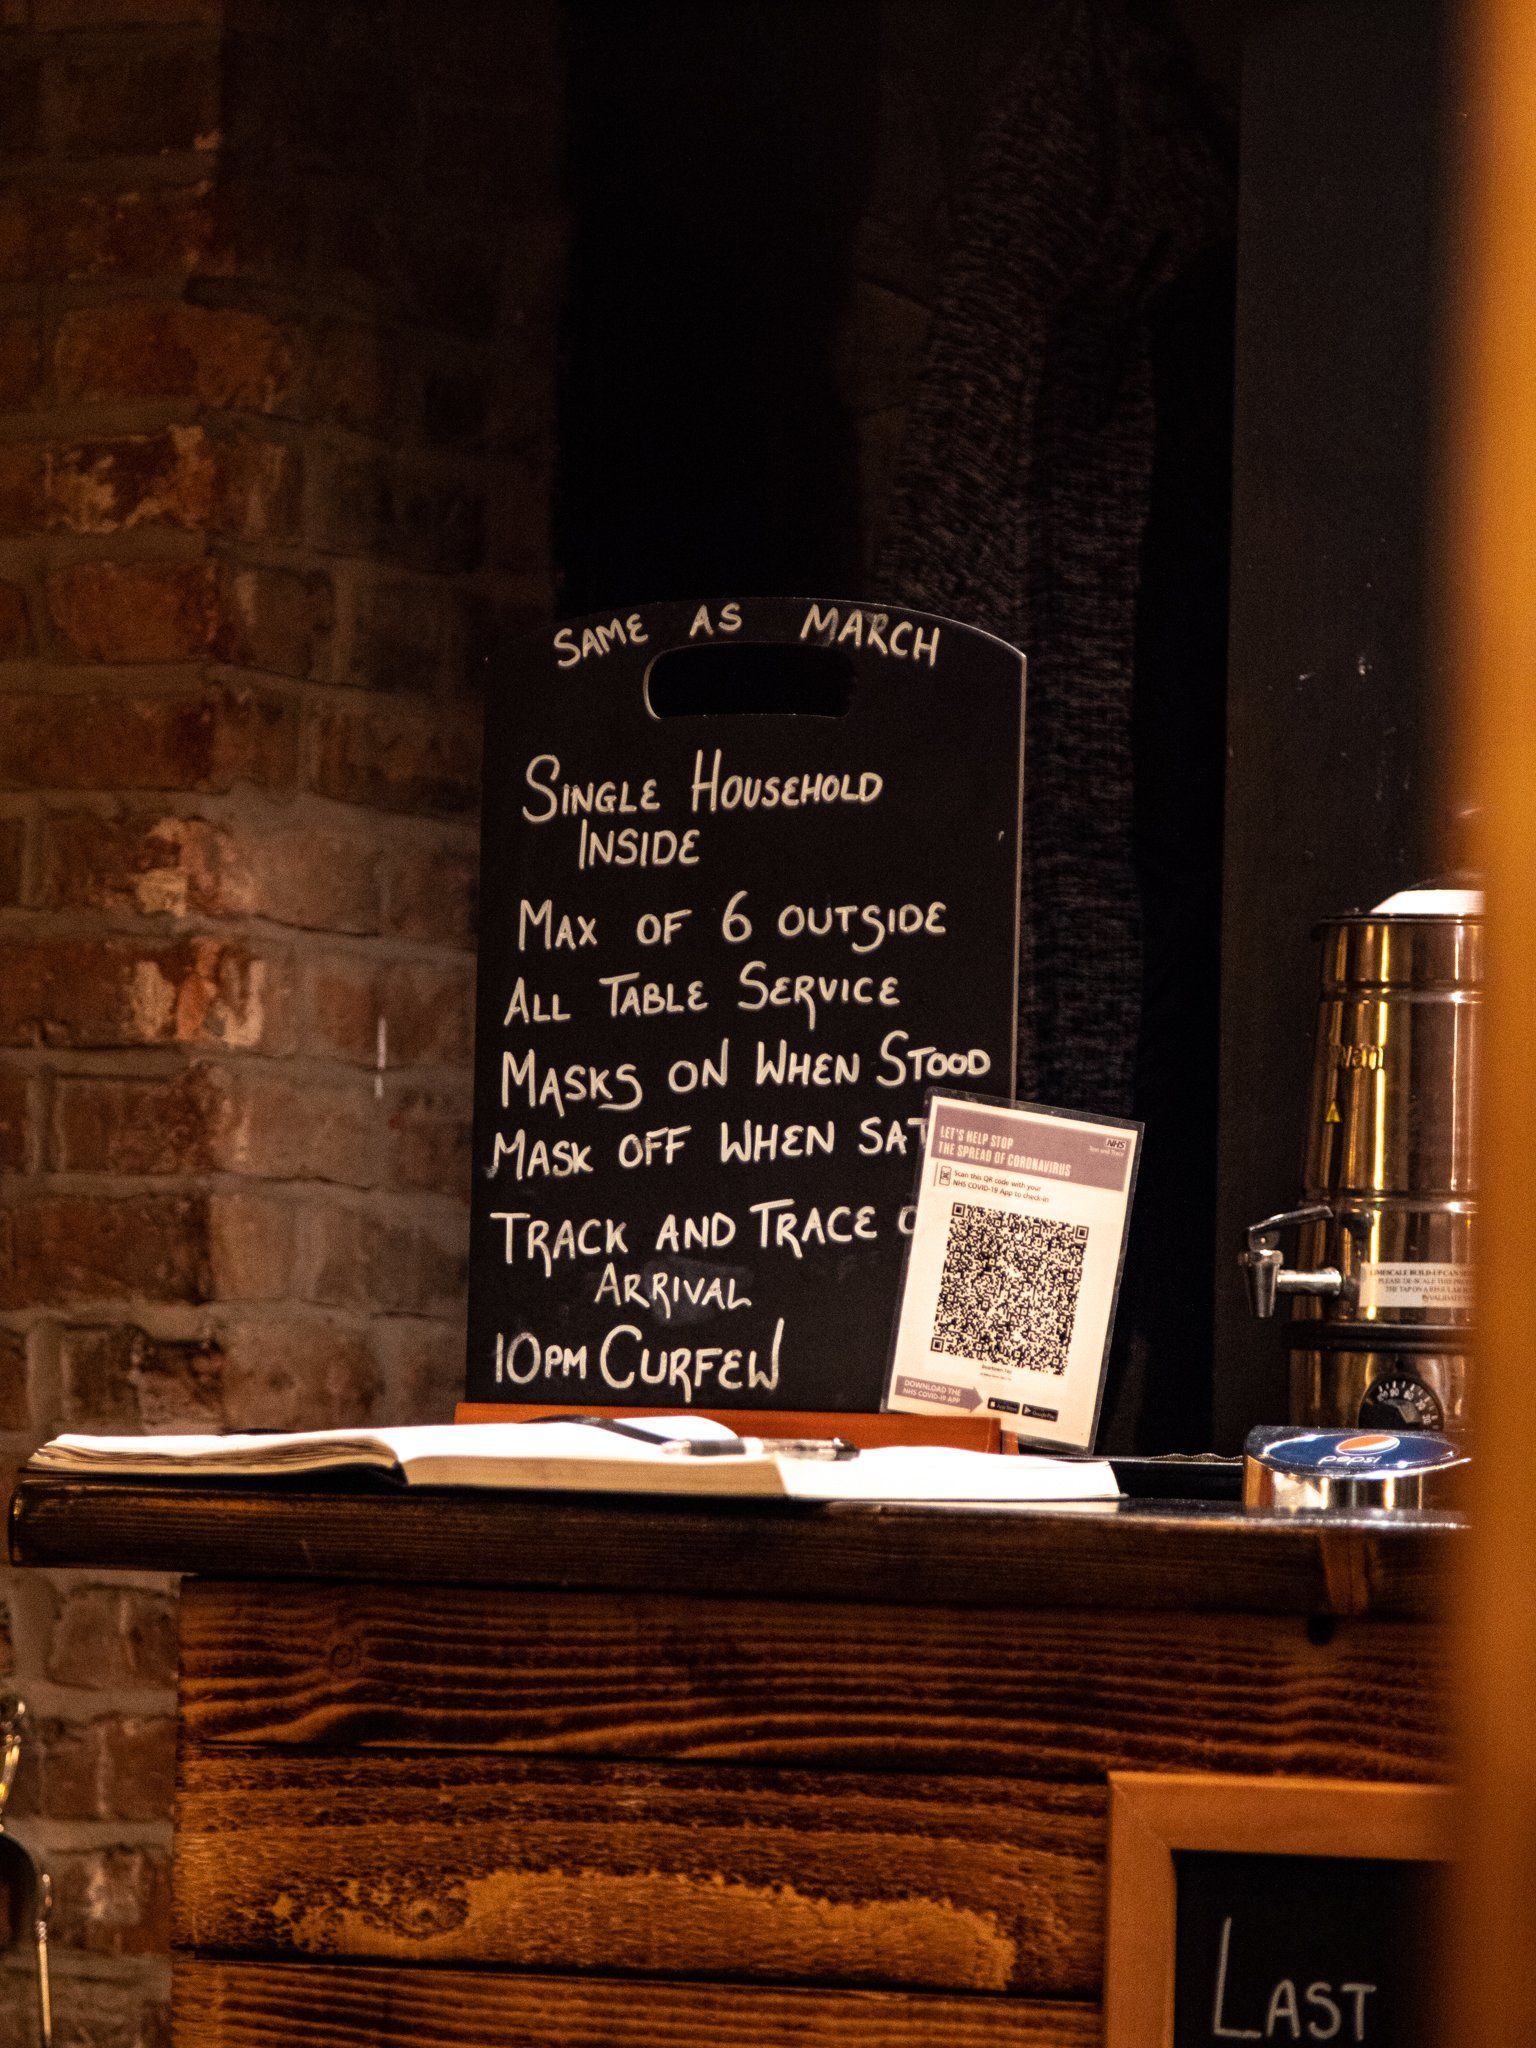 SAME AS MARCH
SINGLE HOUSEHOLD
INSIDE
MAX OF 6 OUTSIDE
ALL TABLE SERVICE
MASKS ON WHEN STOOD
MASK OFF WHEN SAT
TRACK AND TRACE
ARRIVAL
10PM CURFEW
LET'S HELP STOP
THE SPREAD OF CORONAVIRUS
NHS
Test and Trace
Scan this QR code with your
NHS COVID-19 App to check-in
DOWNLOAD THE
NHS COVID-19 APP
App Store
Google Play
LIMESCALE BUILD-UP CAN
PLEASE DE-SCALE THIS
THE TAP ON A REGULAR
pepsi
LAST